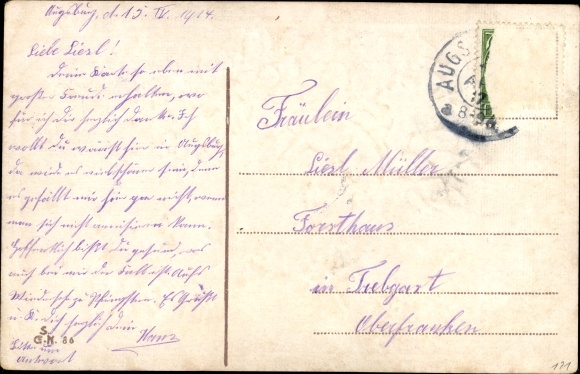 Augsburg, d. 15. IV. 1914.
Liebe Liesl!
Deine Karte so eben mit
großer Freude erhalten, wo
für ich dir herzlich danke. Ich
wollt du wärst hier in Augsburg,
da wird es viel schöner sein, denn
es gefällt mir hier gar nicht, wenn
man sich nicht amüsieren kann.
Hoffentlich bist du gesund, was
auch bei mir der Fall ist. Aufs
Wiedersehn zu Pfingsten. Es Grüßt
u. K. dich herzlich dein
Hans
Bitte um
Antwort
S.
G.N. 86
AUGS
8-9
Fräulein
Liesl Müller
Forsthaus
in Tiebgart
Oberfranken
171